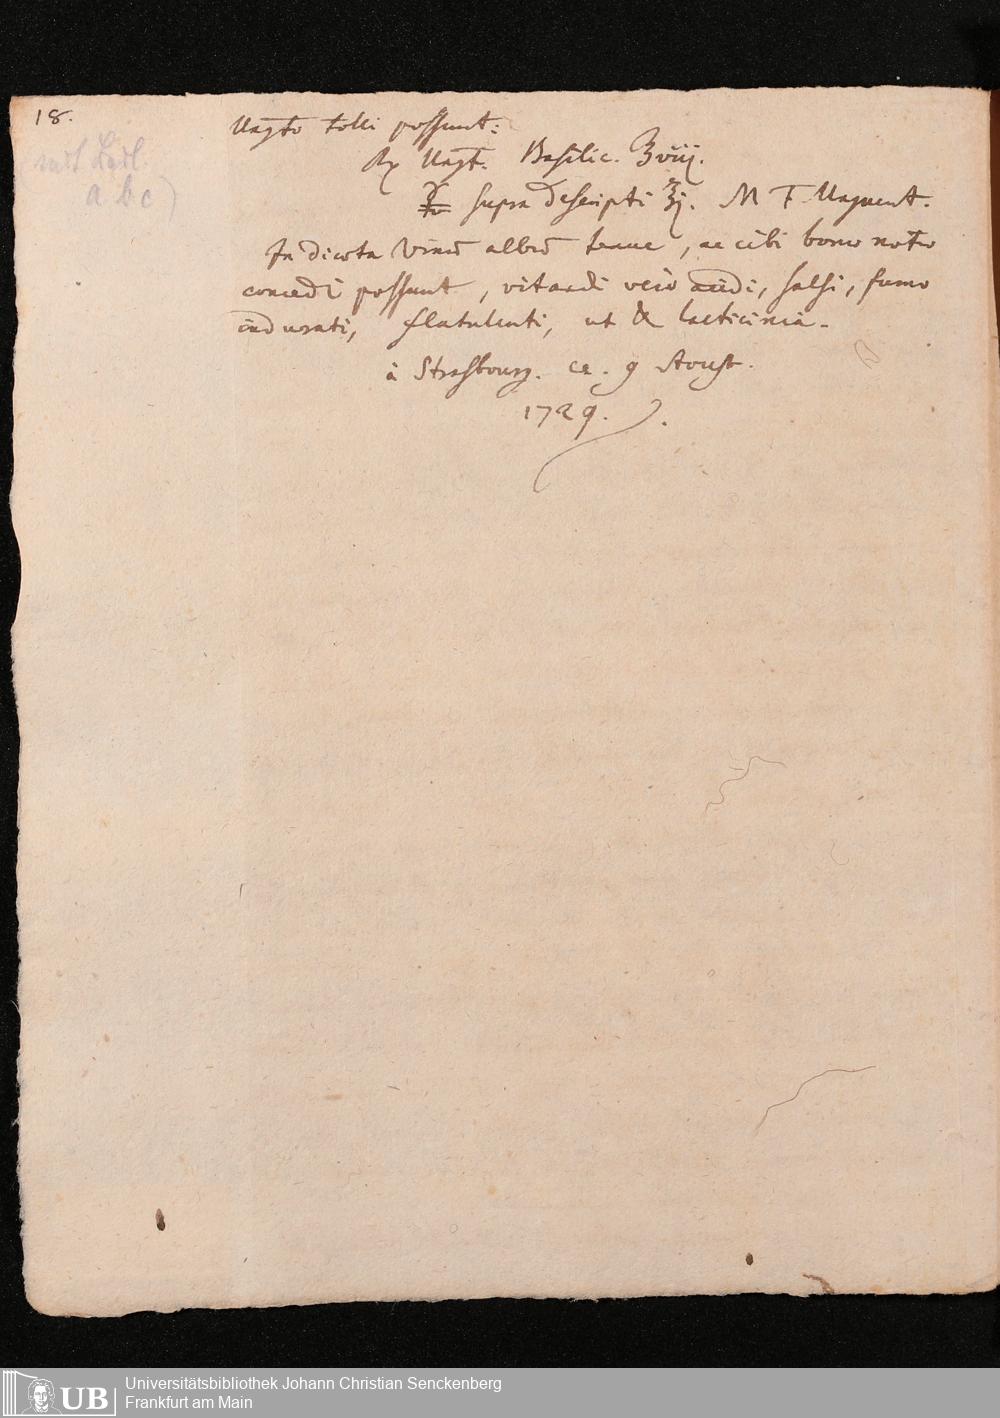 18.
Ungto tolli possunt:
℞ Ungt. Basilic. ʒviij.
supra descripti ʒj. M F Unguent.
In diœta Vinū albū tenue, ac cibi bonæ notæ
concedi possunt, vitandi vero acidi, salsi, fumo
indurati, flatulenti, ut & lacticinia.
à Strasbourg. ce. 9 Aoust.
1729.
a b c)
UB
Universitätsbibliothek Johann Christian Senckenberg
Frankfurt am Main